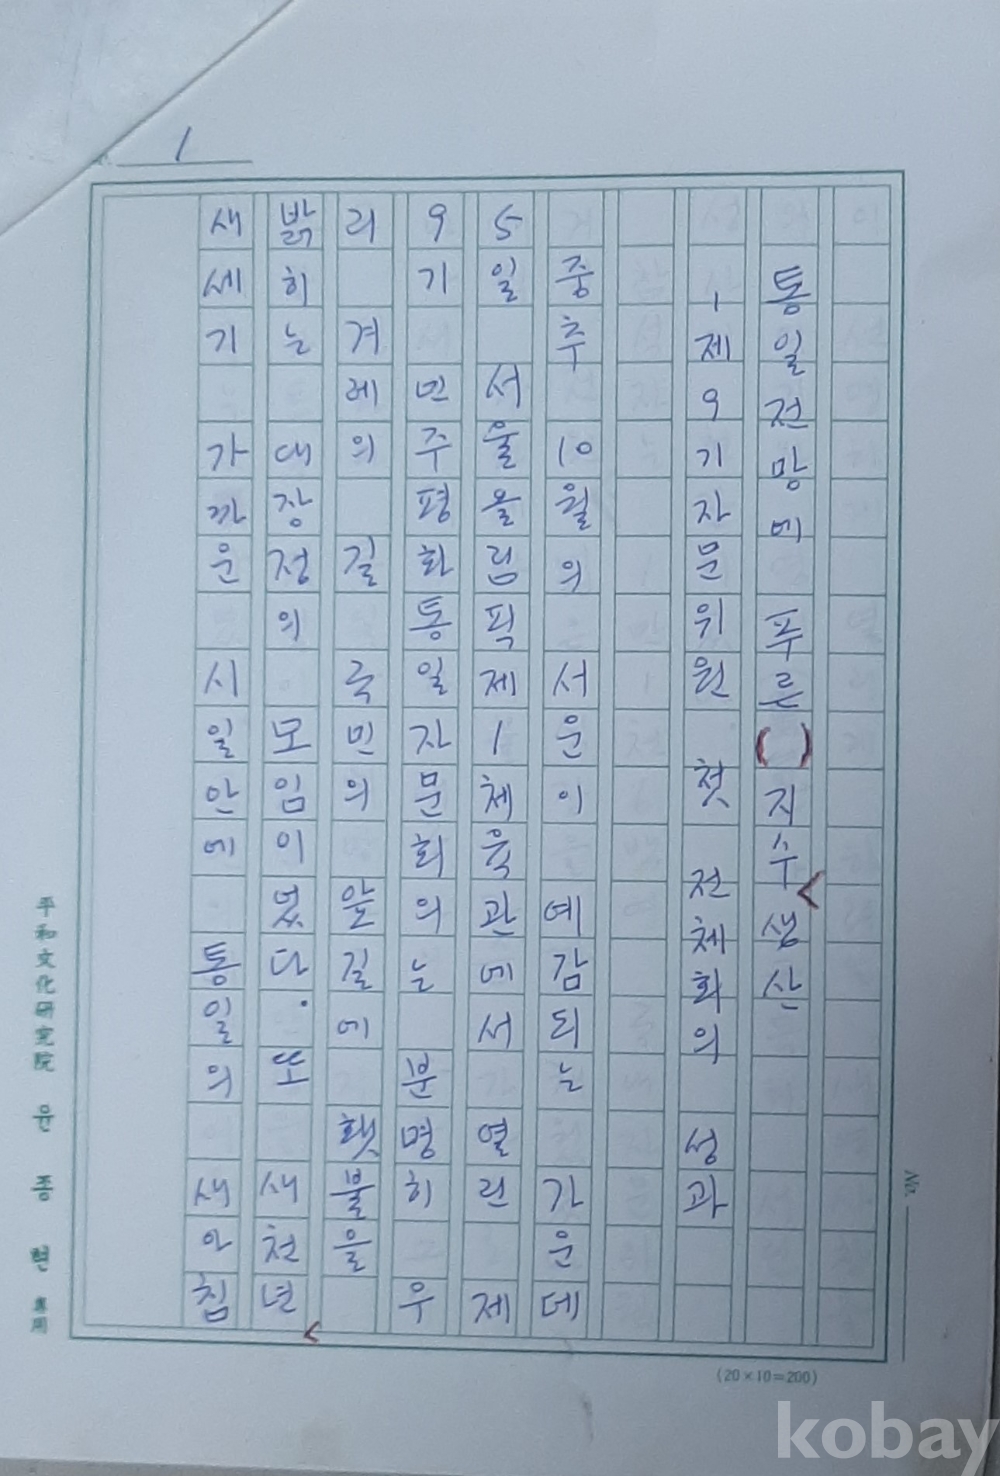 1
통일전망에 푸른( )지수<생산
-제9기자문위원 첫 전체회의 성과
중추 10월의 서운이 예감되는 가운데
5일 서울올림픽제1체육관에서 열린 제
9기 민주평화통일자문회의는 분명히 우
리 겨레의 길 국민의 앞길에 횃불을
밝히는 대장정의 모임이었다. 또 새천년<
새세기 가까운 시일안에 통일의 새아침
平和文化研究院 윤종현 專用
No.
(20×10=200)
kobay